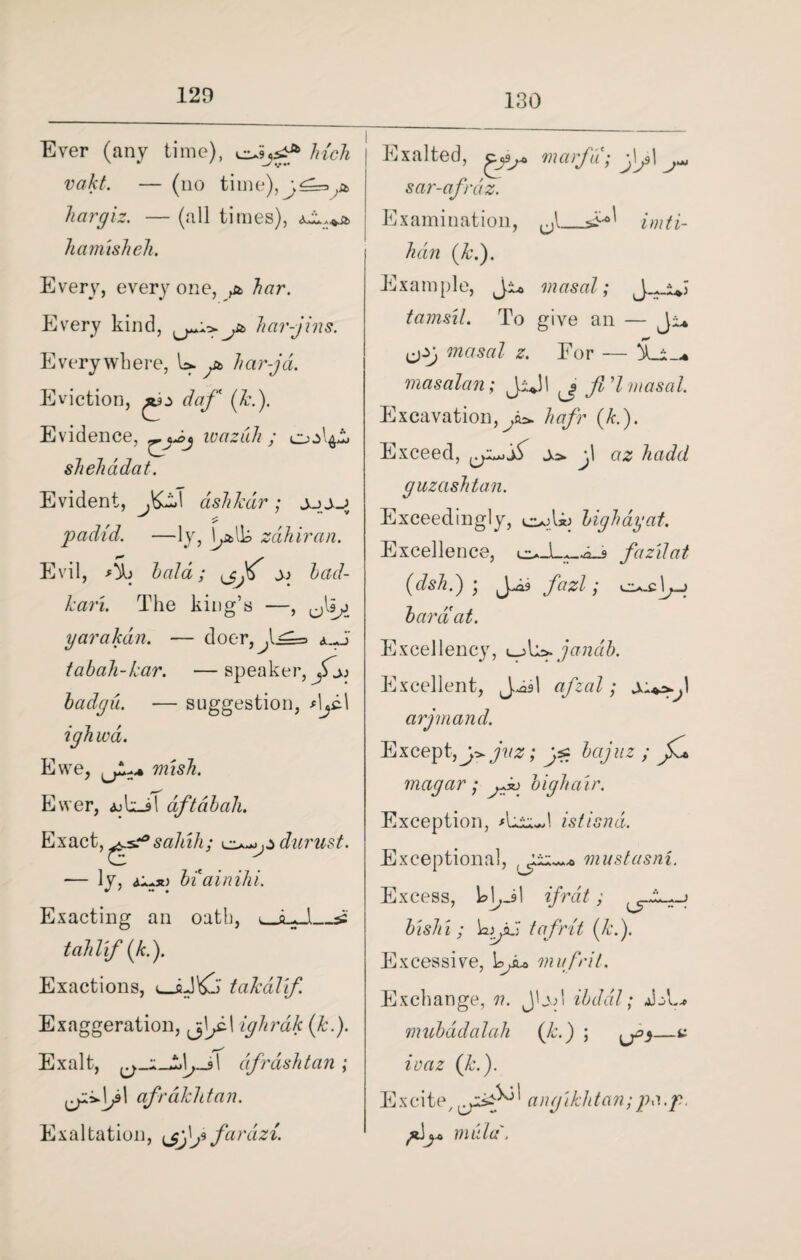 129
Ever (any time), هیچوقت hích
vakt. — (no time), هرگز
hargiz. — (all times), همیشه
hamisheh.
Every, every one, هر har.
Every kind, هر جنس har-jins.
Everywhere, هر جا har-já.
Eviction, دفع dafʿ (k.).
Evidence, وضوح wazúh ; شهادت
shehádat.
Evident, آشکار áshkár ; پدید
padíd. —ly, ظاهرا záhiran.
Evil, بلاء balá ; بد کاری bad-
kari. The king’s —, یرقان
yarakán. — doer, تبه کار
tabah-kar. — speaker, بدگو
badgú. — suggestion, اغواء
ighwá.
Ewe, میش mísh.
Ewer, آفتابه áftábah.
Exact, صحیح sahíh ; درست durust.
— ly, بعینه bi'ainihi.
Exacting an oath, تحلیف
tahlíf (k.).
Exactions, تکالیف takálíf.
Exaggeration, اغراق ighrák (k.).
Exalt, آفراشتن áfráshtan ;
افراختن afrákhtan.
Exaltation, فرازی farázi.
130
Exalted, مرفوع marfú‘ ; سر افراز
sar-afráz.
Examination, امتحان imti-
hán (k.).
Example, مثل masal ; تمثیل
tamsíl. To give an — مثل
زدن masal z. For — مثلا
masalan ; فی المثل fi ’l masal.
Excavation, حفر hafr (k.).
Exceed, از حد گذشتن az hadd
guzashtan.
Exceedingly, بغایت bigháyat.
Excellence, فضیلت fazílat
(dsh.) ; فضل fazl ; براعت
bará'at.
Excellency, جناب janáb.
Excellent, افضل afzal ; ارجمند
arjmand.
Except, جز juz ; بجز bajuz ; مگر
magar ; بغیر bighair.
Exception, استثناء istisná.
Exceptional, مستثنی mustasní.
Excess, افراط ifrát ; بیشی
bíshí ; تفریط tafrít (k.).
Excessive, مفرط mufrit.
Exchange, n. ابدال ibdál ; مبادله
mubádalah (k.) ; عوض
ivaz (k.).
Excite, انگیختن angíkhtan; pa.p.
مولع múla‘.